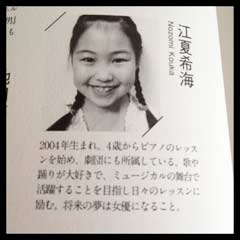 江夏希海
Nozomi Kouka
2004年生まれ。4歳からピアノのレッス
ンを始め、劇団にも所属している。歌や
踊りが大好きで、ミュージカルの舞台で
活躍することを目指し日々のレッスンに
励む。将来の夢は女優になること。